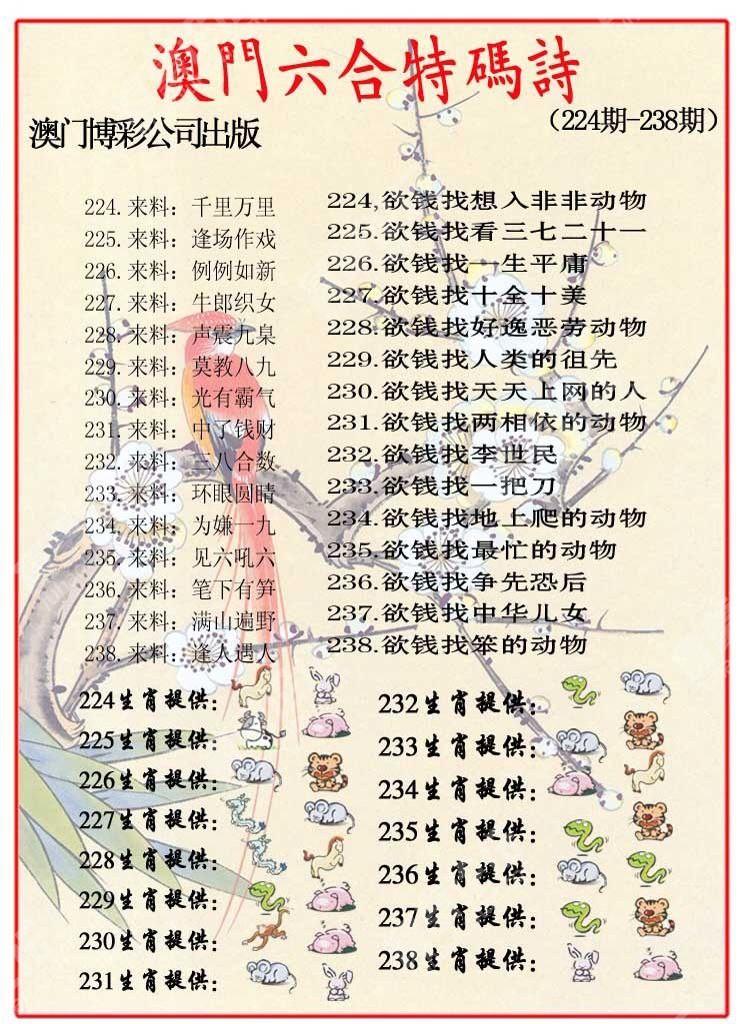 澳門六合特碼詩
澳门博彩公司出版
（224期-238期）
224.来料：千里万里
225.来料：逢场作戏
226.来料：例例如新
227.来料：牛郎织女
228.来料：声震九臬
229.来料：莫教八九
230.来料：光有霸气
231.来料：中了钱财
232.来料：三八合数
233.来料：环眼圆睛
234.来料：为嫌一九
235.来料：见六吼六
236.来料：笔下有笋
237.来料：满山遍野
238.来料：逢人遇人
224,欲钱找想入非非动物
225.欲钱找看三七二十一
226.欲钱找一生平庸
227.欲钱找十全十美
228.欲钱找好逸恶劳动物
229.欲钱找人类的祖先
230.欲钱找天天上网的人
231.欲钱找两相依的动物
232.欲钱找李世民
233.欲钱找一把刀
234.欲钱找地上爬的动物
235.欲钱找最忙的动物
236.欲钱找争先恐后
237.欲钱找中华儿女
238.欲钱找笨的动物
224生肖提供：
225生肖提供：
226生肖提供：
227生肖提供：
228生肖提供：
229生肖提供：
230生肖提供：
231生肖提供：
232生肖提供：
233生肖提供：
234生肖提供：
235生肖提供：
236生肖提供：
237生肖提供：
238生肖提供：